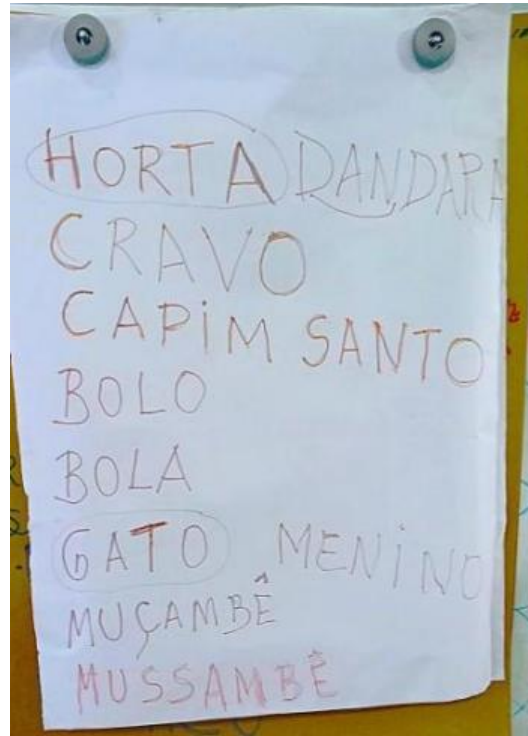 HORTA DANDARA
CRAVO
CAPiM SANTO
BOLO
BOLA
GATO MENiNO
MUÇAMBÊ
MUSSAMBÊ